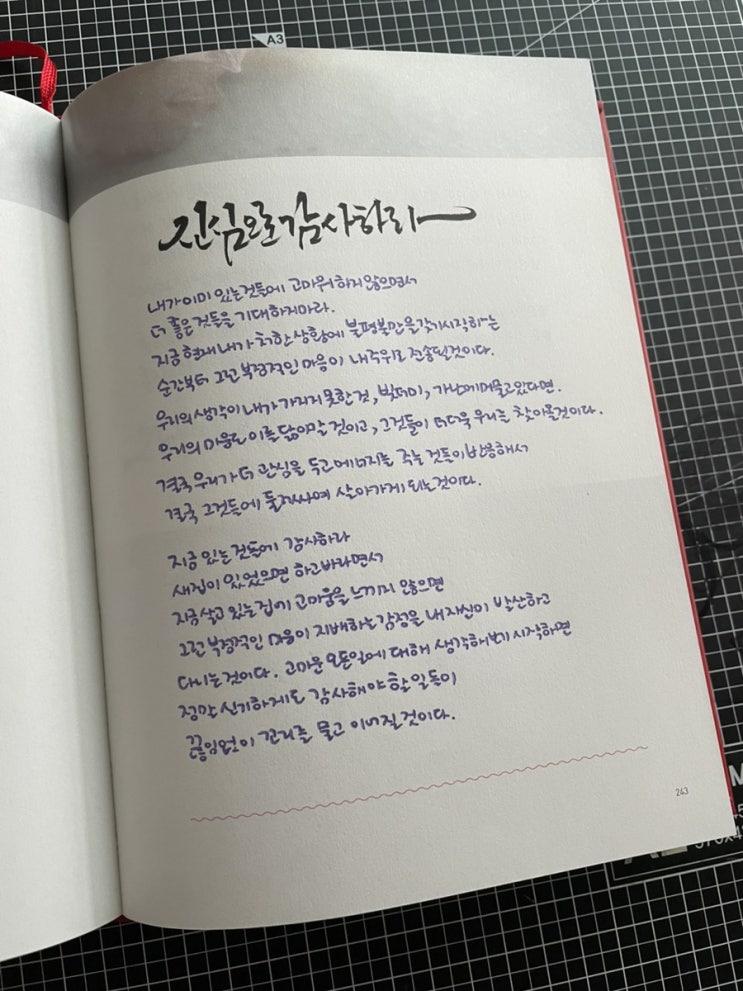 A3
진심으로 감사하라
내가 이미 있는 것들에 고마워 하지 않으면서
더 좋은 것들을 기대하지마라.
지금 현재 내가 처한 상황에 불평불만을 갖기 시작하는
순간부터 그런 부정적인 마음이 내 주위로 전송될 것이다.
우리의 생각이 내가 가지지 못한 것, 빚더미, 가난에 머물고 있다면.
우리의 마음은 이를 닮아갈 것이고, 그것들이 더더욱 우리를 찾아올 것이다.
결국 우리가 더 관심을 두고 에너지를 주는 것들이 반응해서
결국 그것들에 둘러싸여 살아가게 되는 것이다.
지금 있는 것들에 감사하라
새집이 있었으면 하고 바라면서
지금 살고 있는 집에 고마움을 느끼지 않으면
그런 부정적인 마음이 지배하는 감정을 내 자신이 발산하고
다니는 것이다. 고마운 모든 일에 대해 생각해보기 시작하면
정말 신기하게도 감사해야 할 일들이
끊임없이 꼬리를 물고 이어질 것이다.
243